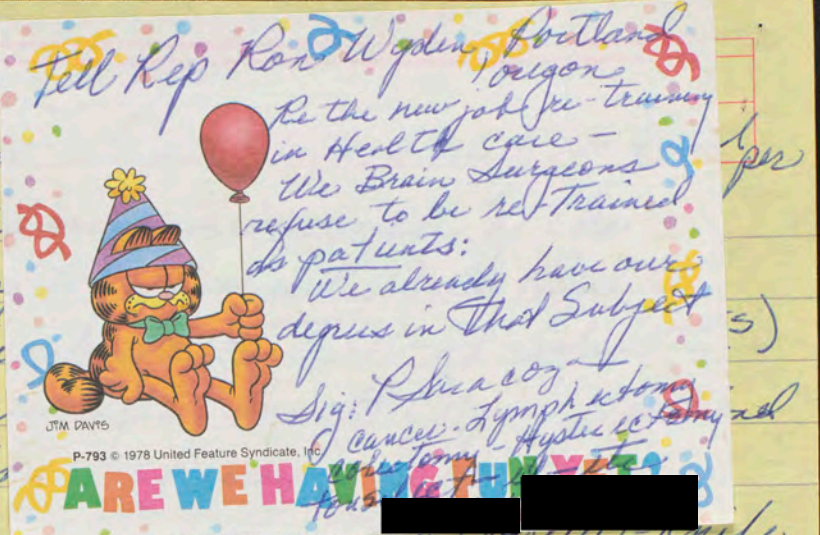 Tell Rep Ron Wyden, Portland
Oregon
Re the new job re-training
in Health care –
We Brain Surgeons
refuse to be re-Trained
as patients:
We already have our
degrees in that Subject
Sig:
cancer - Lymphectomy
- Hysterectomy
JIM DAVIS
P-793 © 1978 United Feature Syndicate, Inc.
ARE WE HAVING FUN YET?
per
s)